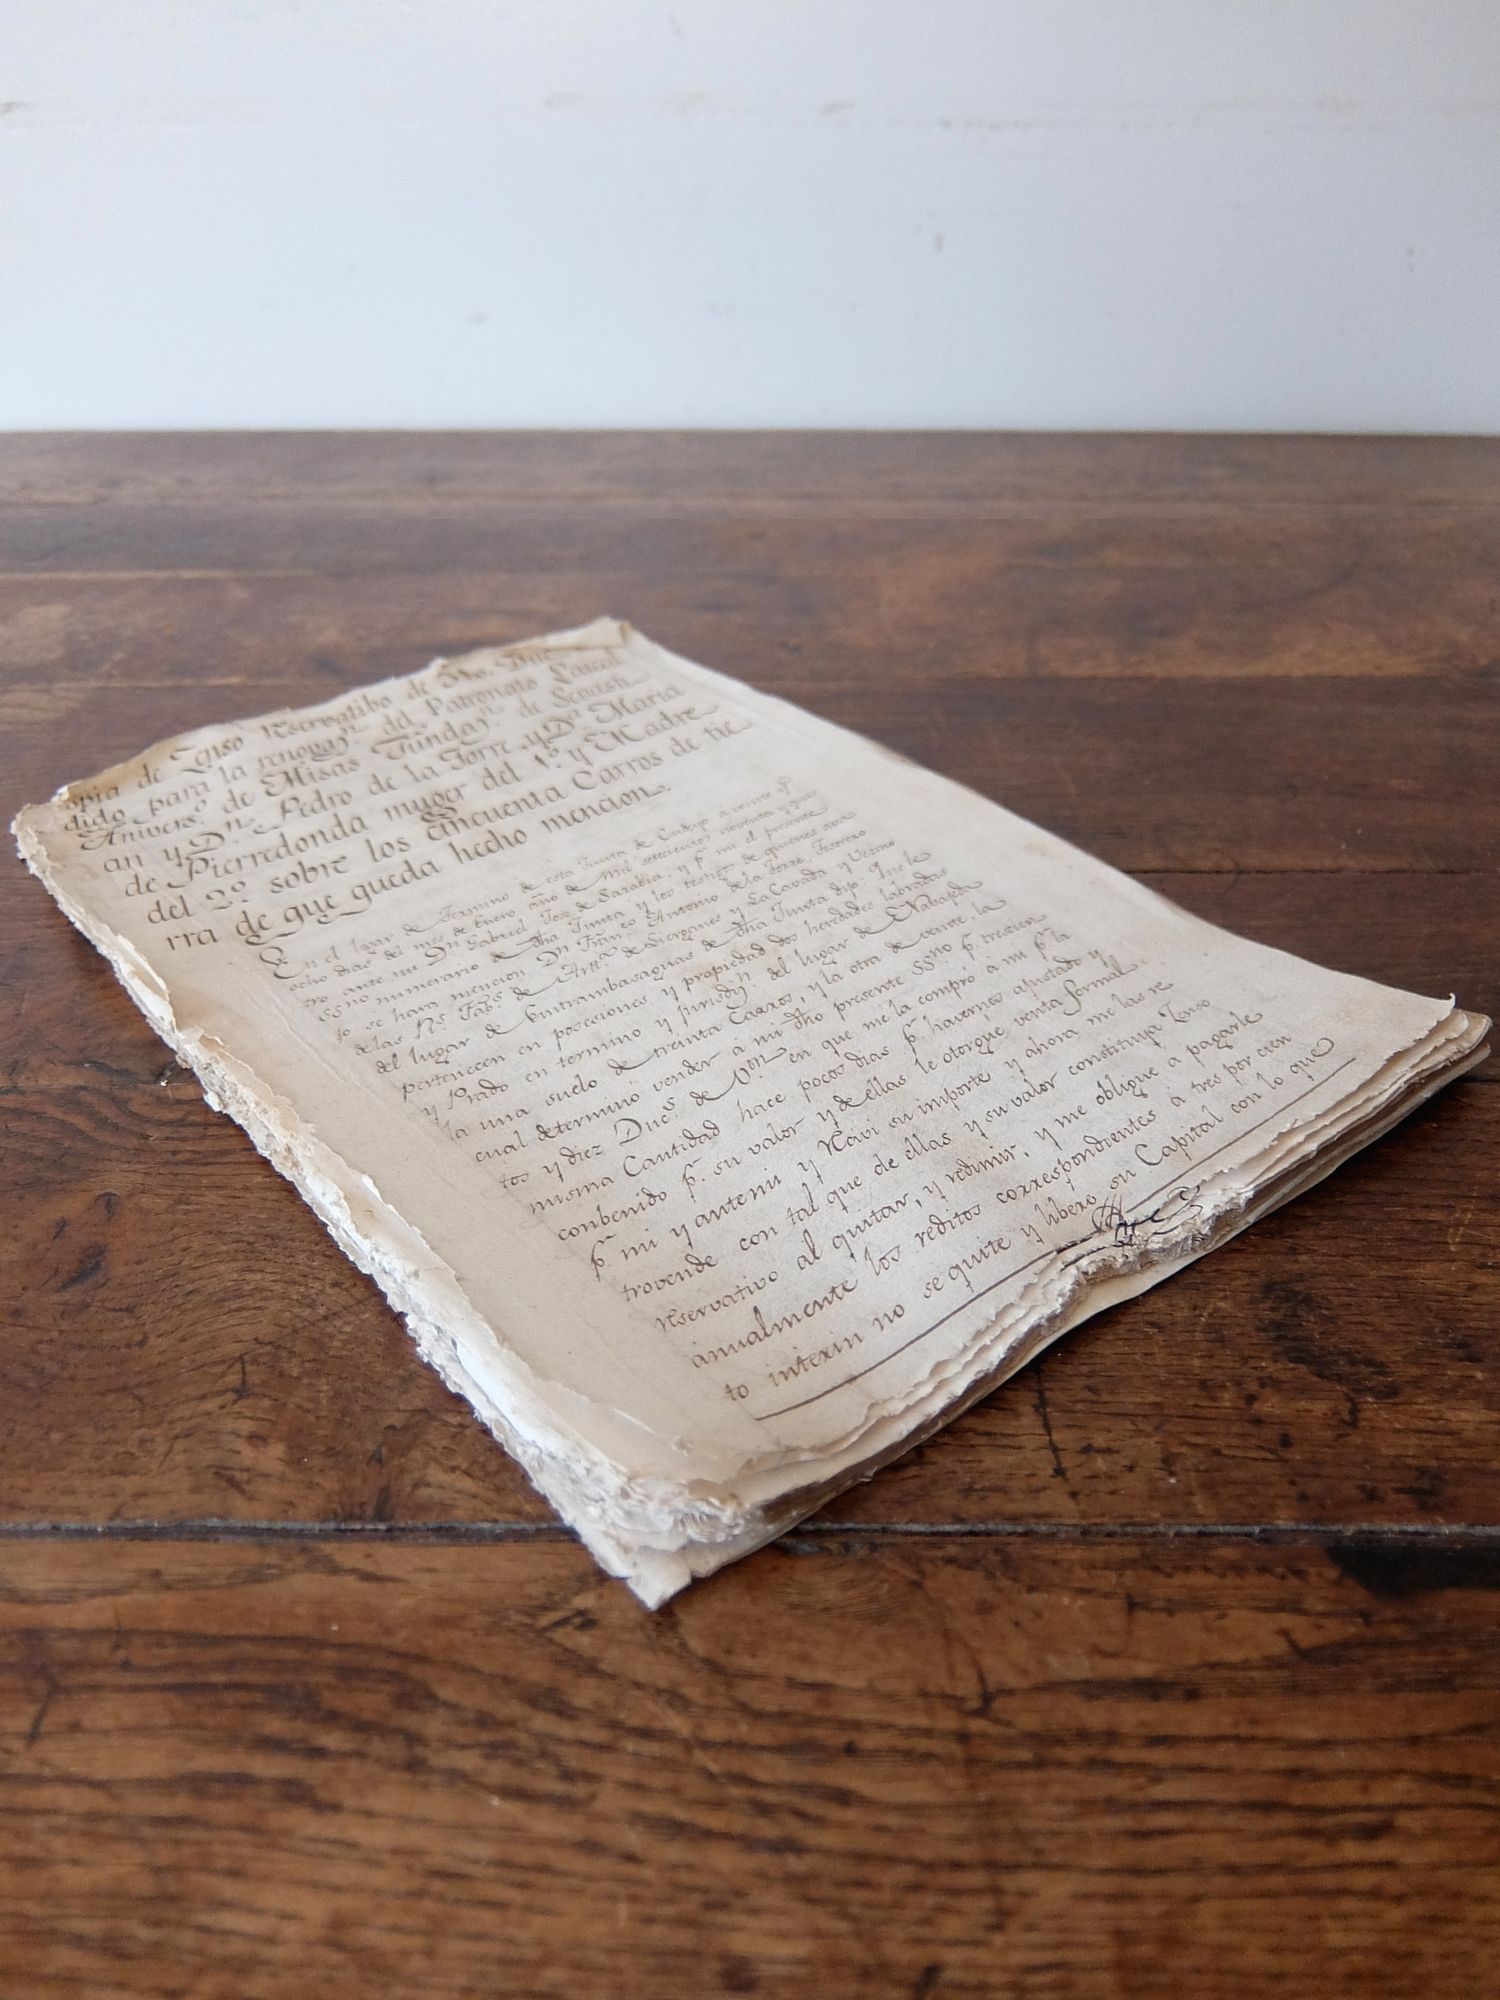 opia de Zenso reservatibo de 310. Duc
dido para la renovaz.n del Patronato Laical
Anivers.o de Misas Fundaz.n de Sebasti
an y Dn. Pedro de la Torre, y Da. Maria
de Pierredonda muger del 1.o y Madre
del 2.o sobre los cincuenta Carros de tie
rra de que queda hecho mencion.
En el lugar de Termino de esta Junta de Cudeyo a veinte y
ocho dias del mes de Enero año de mil setecientos noventa y qua
tro ante mi Dn. Gabriel Jose de Sarabia, y pr. mi el presente
SSno numerario de dha Junta y los testigos de quienes aba
jo se hara mencion Dn. Franco Antonio de la Torre, Tesorero
de las Rs. Fabs. de Arta. de Lierganes y La Cavada y Vezino
del lugar de Entrambasaguas de dha Junta dijo Que le
pertenecen en posesiones y propiedad dos heredades labradas
y Prado en termino y jurisdn. del lugar de Nabajeda
la una suelo de treinta Carros, y la otra de veinte, la
cual determinó vender á mi dho presente SSno pr. trescien
tos y diez Ducs. de Von. en que me la compró á mi pr. la
misma Cantidad hace pocos dias pr. havernos ajustado y
conbenido pr. su valor y de ellas le otorgue venta formál
pr. mi y ante mi y Recivi su importe y ahora me las re
trovende con tal que de ellas y su valor constituya Zenso
reservativo al quitar, y redimir, y me obligue a pagarle
anualmente los reditos correspondientes á tres por cien
to interin no se quite y libere su Capital con lo que